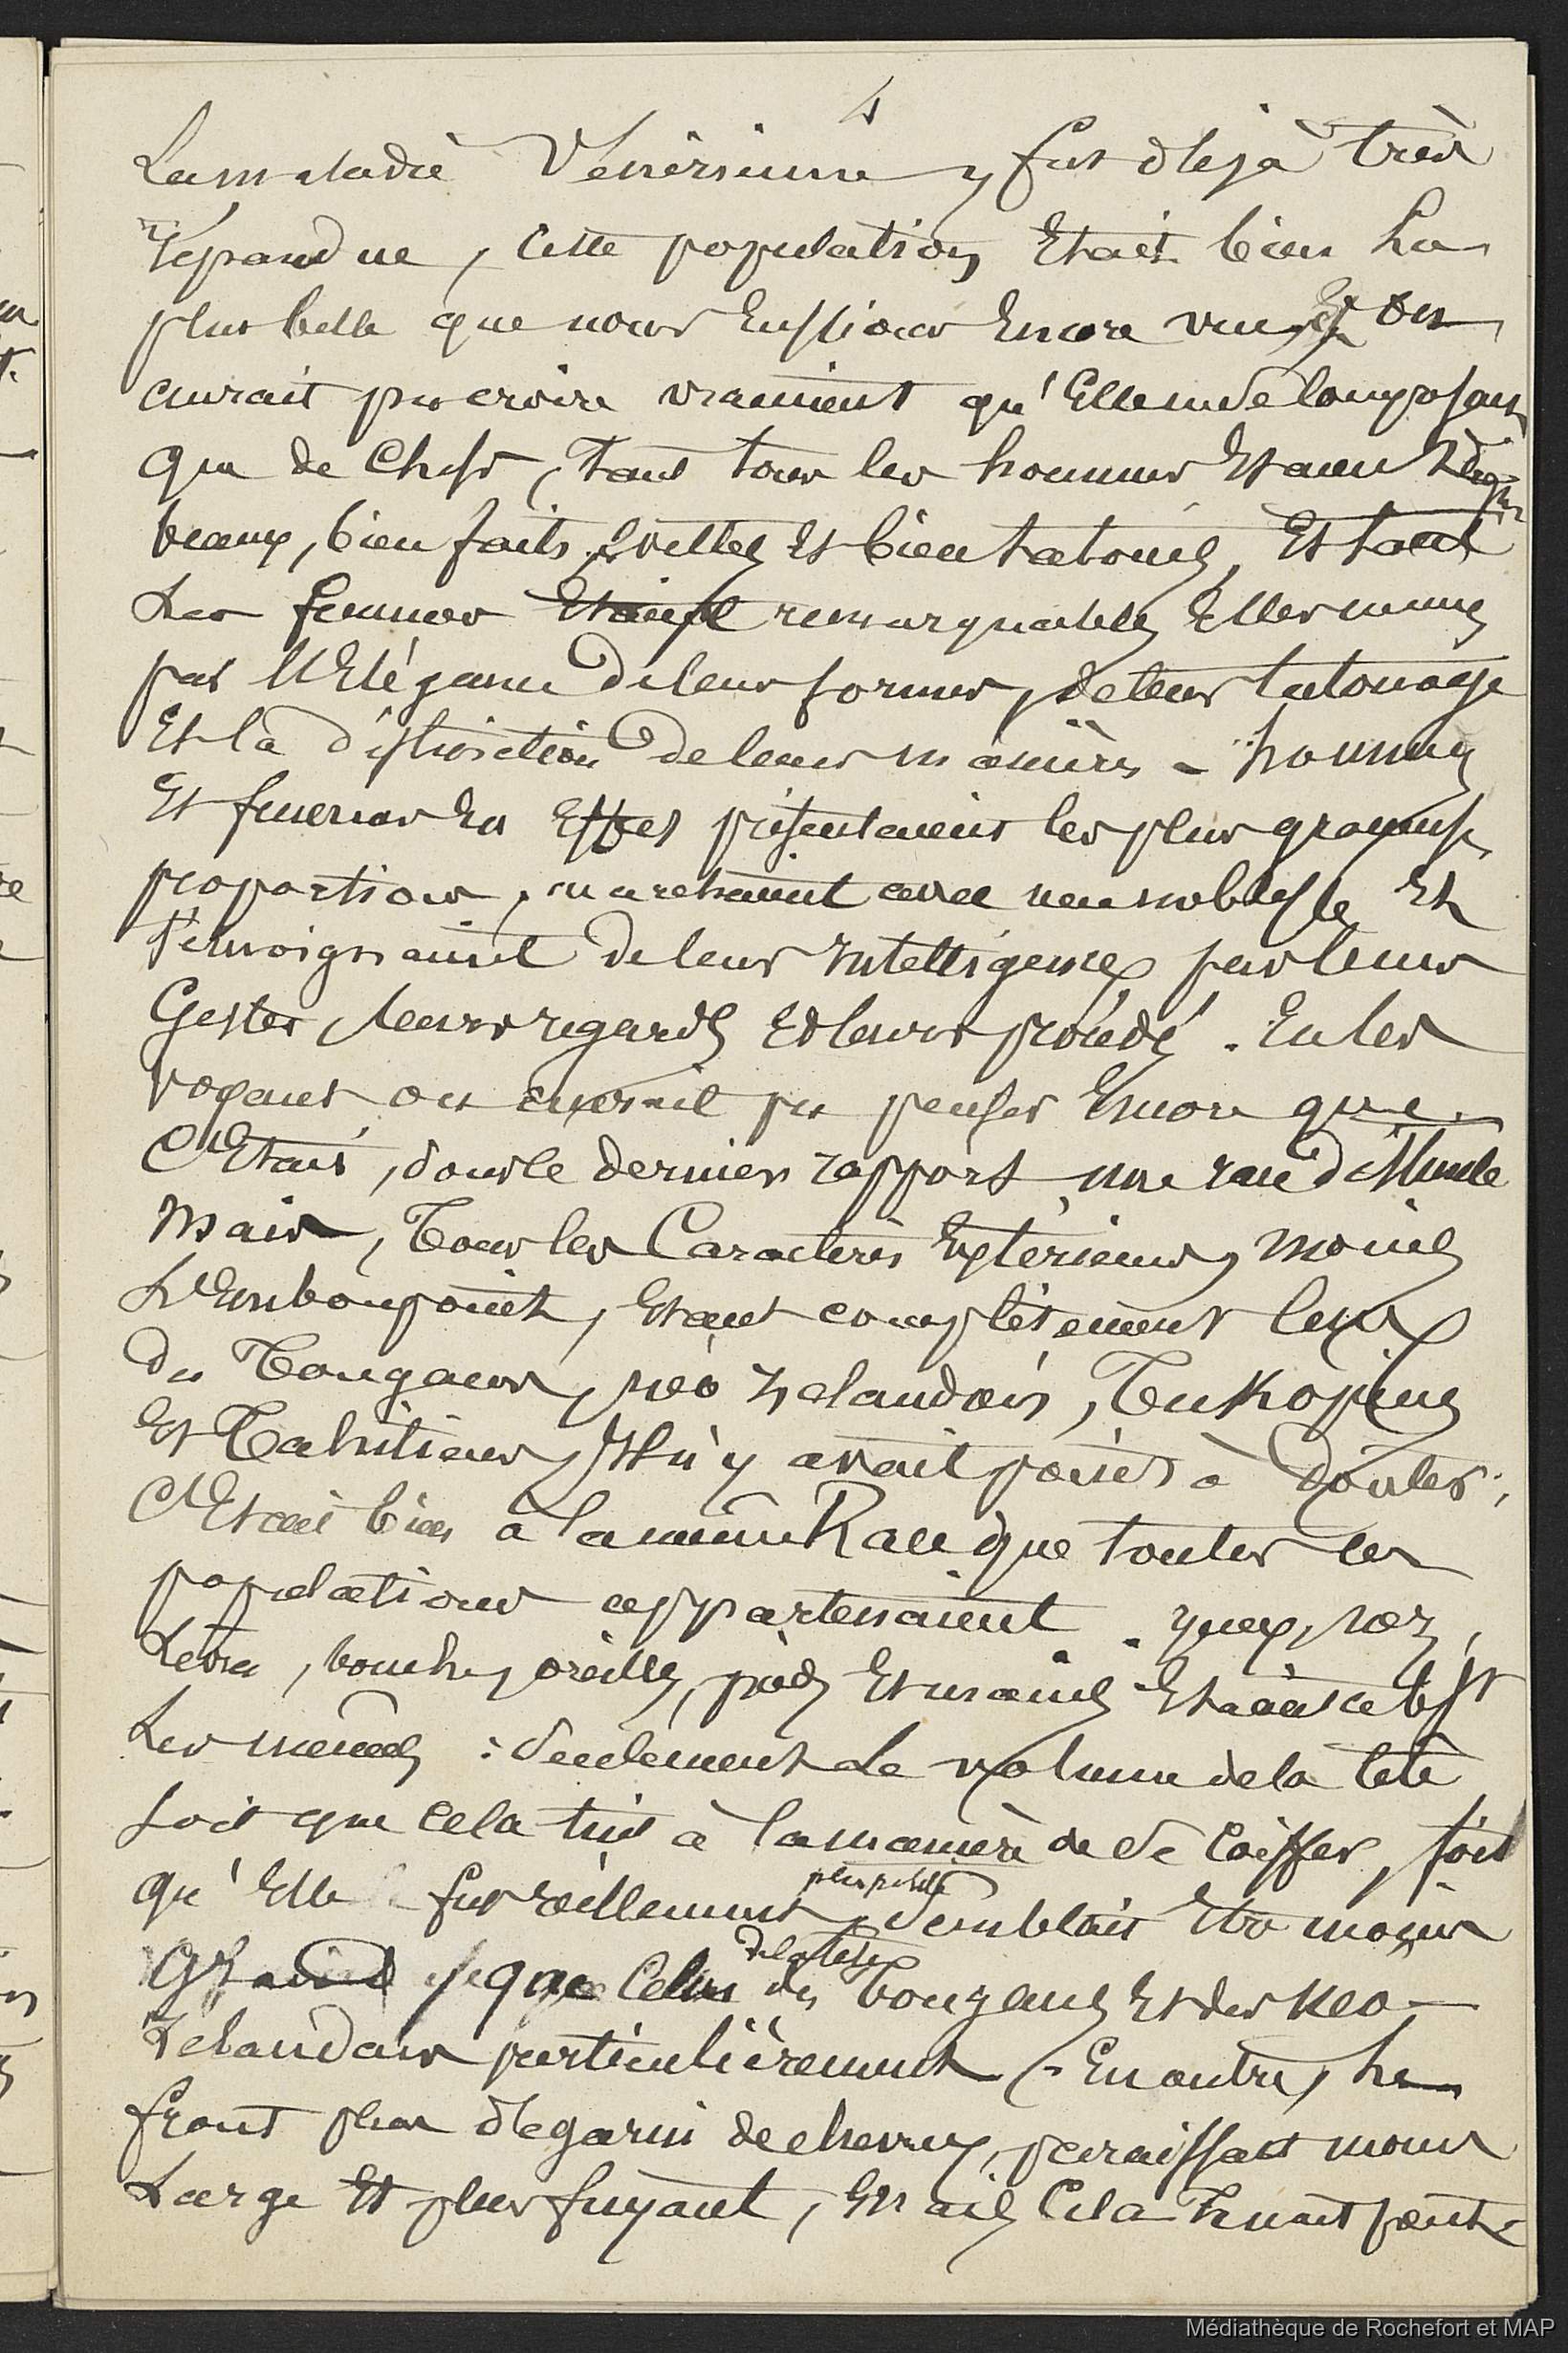 4
La maladie Vénérienne y fut déjà très
répandue, cette population Etait bien La
plus belle que nous Eussions Encore vue, Et on
aurait pu croire vraiment qu'Elle ne se composait
que de Chefs, tant tous les hommes Etaient
beaux, bien faits, sveltes Et bien tatoués, Et tant
Les femmes Etaient remarquables Elles mêmes
par l'Elégance de leurs formes, de leur tatouage
Et la distinction de leurs manières - hommes
Et femmes En Effet présentaient les plus gracieuses
proportions, marchaient avec une noblesse Et
témoignaient de leur intelligence par leurs
Gestes, leurs regards Et leurs procédés. En les
voyant on aurait pu penser Encore que
C'Etait, sous le dernier rapport une race distincte
Mais, Tous les Caractères Extérieurs, moins
L'Embonpoint, Etant complètement ceux
des Tongans, néo Zelandais, Tukopiens
Et Tahitiens, Il n'y avait point à douter;
C'Etait bien à la même Race que toutes ces
populations appartenaient. yeux, nez,
Lèvres, bouche, oreilles, pieds Et mains Etaient
Les mêmes : Seulement Le volume de la tête
soit que cela tint à la manière de se Coiffer, soit
qu'Elle fut réellement plus petite, Semblait Etre moins
Grand que Celui de la tête des Tongans Et des Neo-
Zelandais particulièrement - En outre, Le
front plus dégarni de cheveux, paraissait moins
Large Et plus fuyant, Mais Cela tenait peut-
Médiathèque de Rochefort et MAP